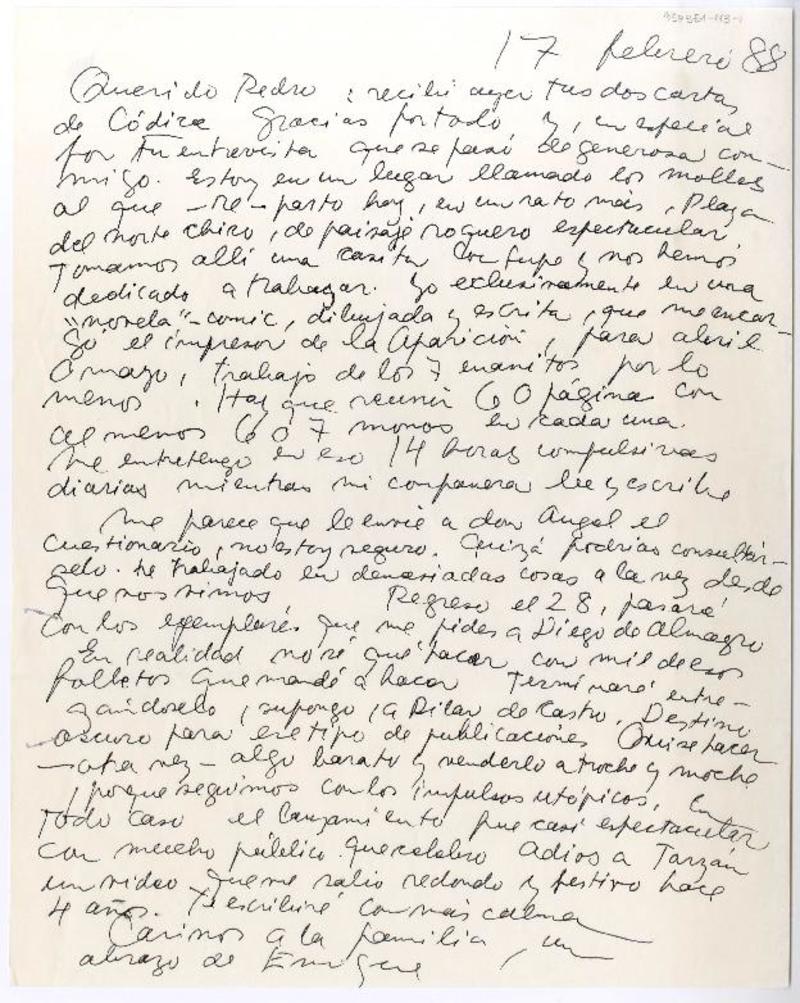 17 febrero 88
Querido Pedro : recibí ayer tus dos cartas
de Códice Gracias por todo, y, en especial
por tu entrevista que se pasó de generosa con-
migo. Estoy en un lugar llamado los molles
al que -re-parto hoy, en un rato más, Playa
del norte chico, de paisaje roquero espectacular,
Tomamos allí una casita con Lupe y nos hemos
dedicado a trabajar. Yo exclusivamente en una
"novela"-comic, dibujada y escrita, que me encar-
gó el impresor de la Aparición, para abril
o mayo, trabajo de los 7 enanitos por lo
menos. Hay que reunir 60 páginas con
al menos 6 o 7 monos en cada una.
Me entretengo en eso 14 horas compulsivas
diarias mientras mi compañera lee y escribe
Me parece que le envié a don Angel el
cuestionario, no estoy seguro. Quizá podrías consultár-
selo. He trabajado en demasiadas cosas a la vez desde
que nos vimos Regreso el 28, pasaré
con los ejemplares que me pides a Diego de Almagro
En realidad no sé qué hacer con mil de esos
folletos que mandé a hacer Terminaré entre-
gándoselo, supongo, a Pilar de Castro. Destino
oscuro para ese tipo de publicaciones Quise hacer
-otra vez- algo barato y venderlo a troche y moche
, porque seguimos con los impulsos utópicos, En
todo caso el lanzamiento fue casi espectacular
con mucho público. que celebró Adiós a Tarzán
un video que me salió redondo y festivo hace
4 años. Te escribiré con más calma
Cariños a la familia, un
abrazo de Enrique